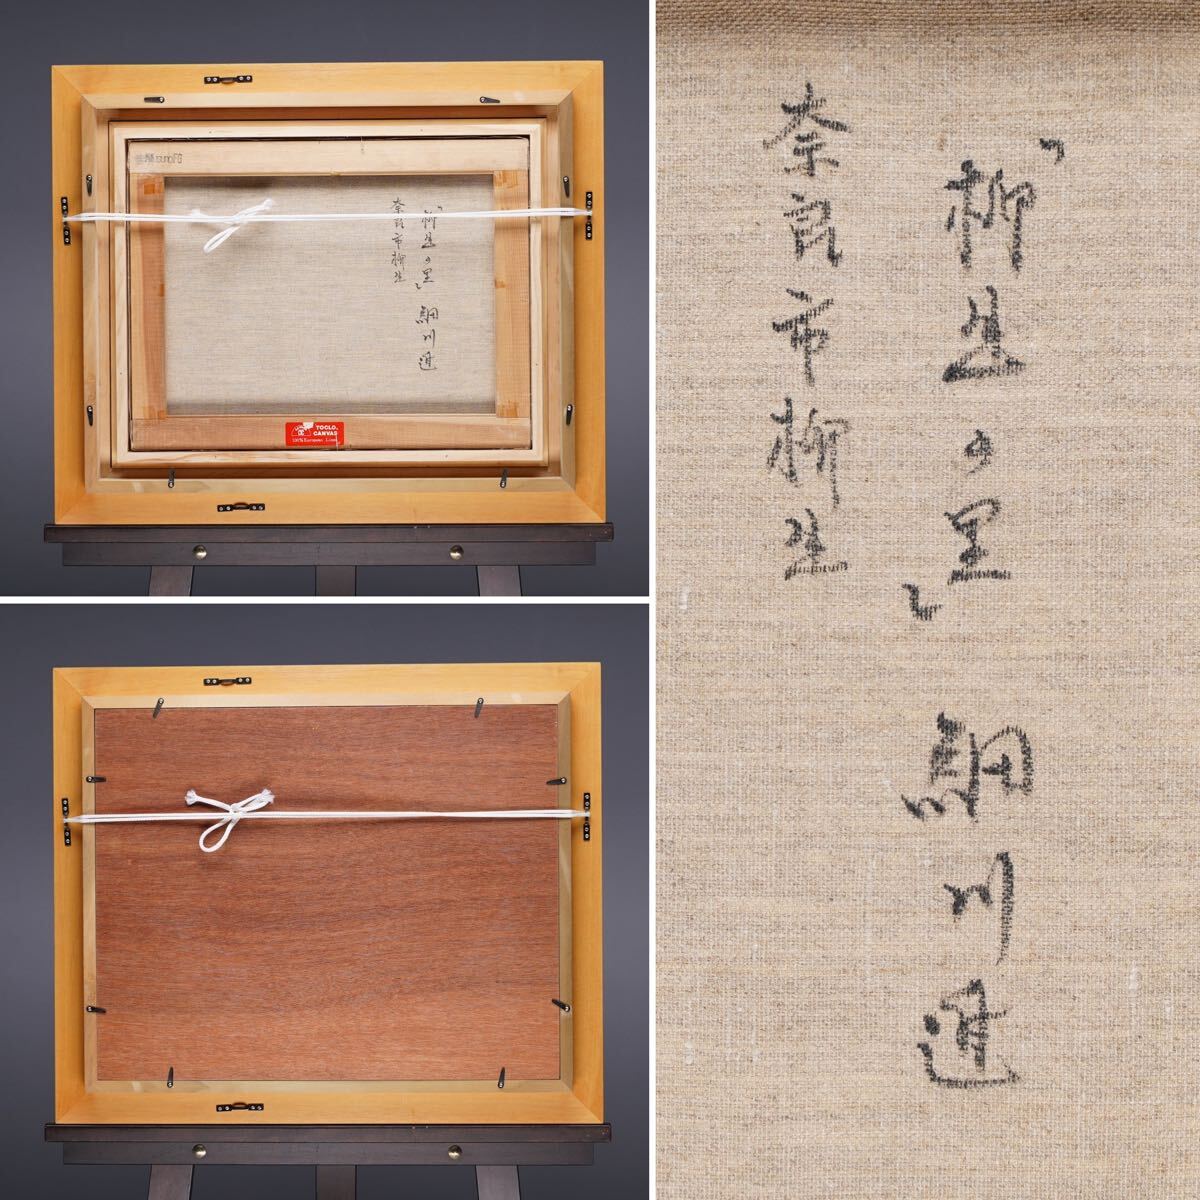 「柳生の里」 細川進
奈良市柳生
「柳生の里」 細川進
奈良市柳生
TOCLO.
CANVAS
100% European Linen